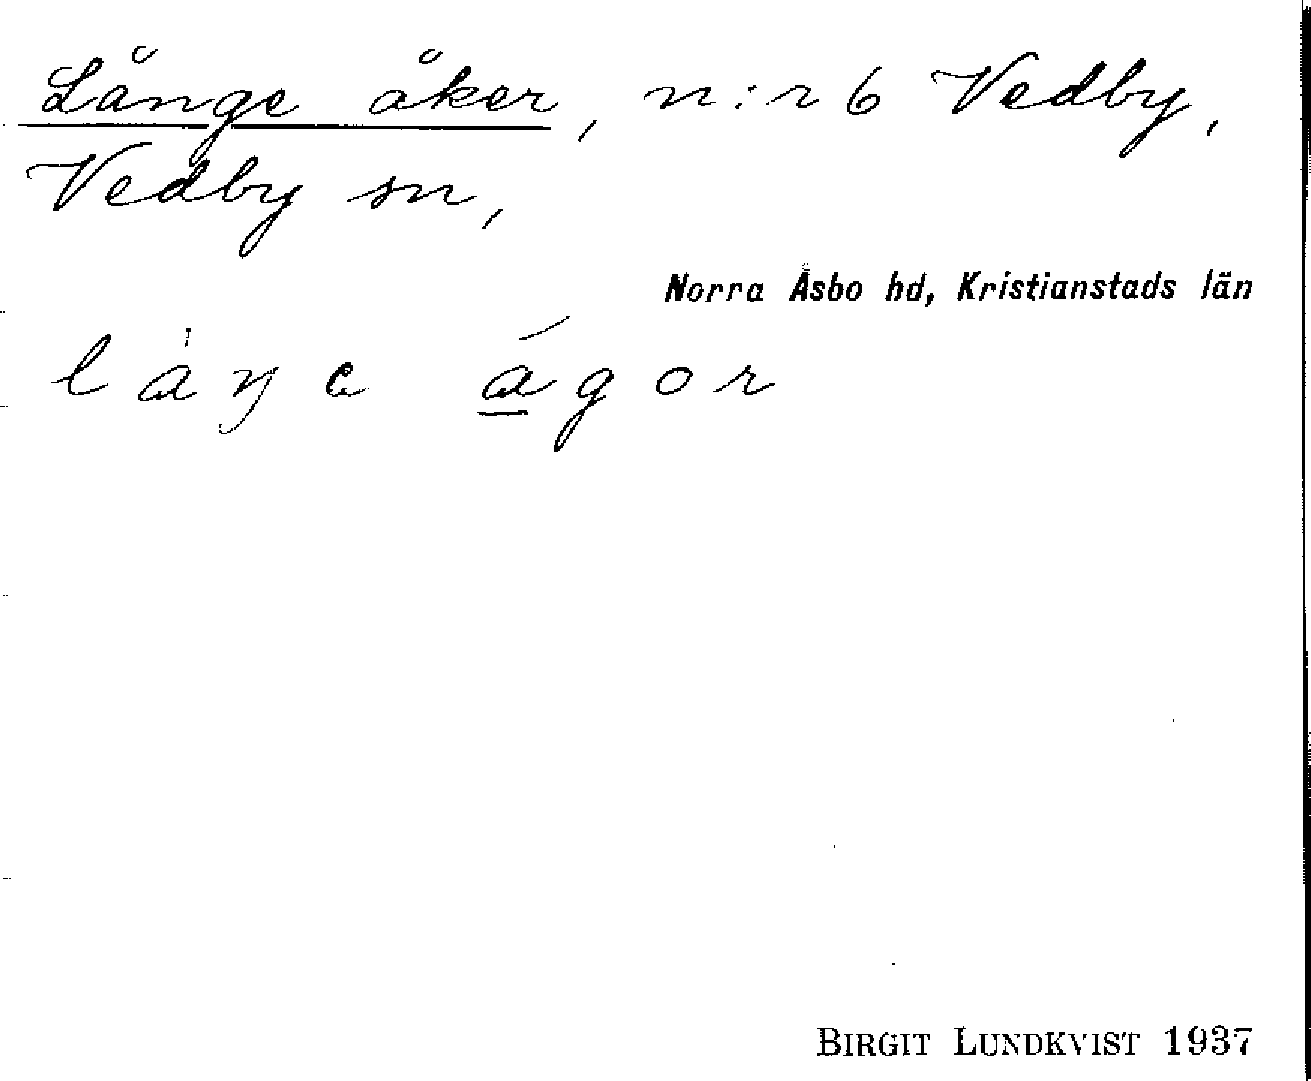 Långe åker, n:r 6 Vedby,
Vedby sn,
Norra Åsbo hd, Kristianstads län
làŋe ágor
BIRGIT LUNDKVIST 1937